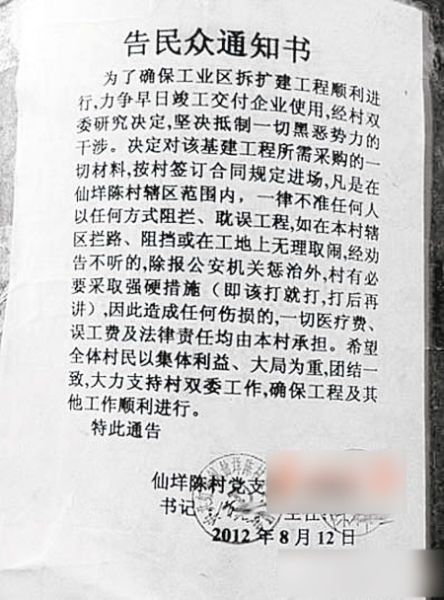 告民众通知书
为了确保工业区拆扩建工程顺利进
行,力争早日竣工交付企业使用,经村双
委研究决定,坚决抵制一切黑恶势力的
干涉。决定对该基建工程所需采购的一
切材料,按村签订合同规定进场,凡是在
仙垟陈村辖区范围内,一律不准任何人
以任何方式阻拦、耽误工程,如在本村辖
区拦路、阻挡或在工地上无理取闹,经劝
告不听的,除报公安机关惩治外,村有必
要采取强硬措施(即该打就打,打后再
讲),因此造成任何伤损的,一切医疗费、
误工费及法律责任均由本村承担。希望
全体村民以集体利益、大局为重,团结一
致,大力支持村双委工作,确保工程及其
他工作顺利进行。
特此通告
仙垟陈村党支
书记
2012年8月12日